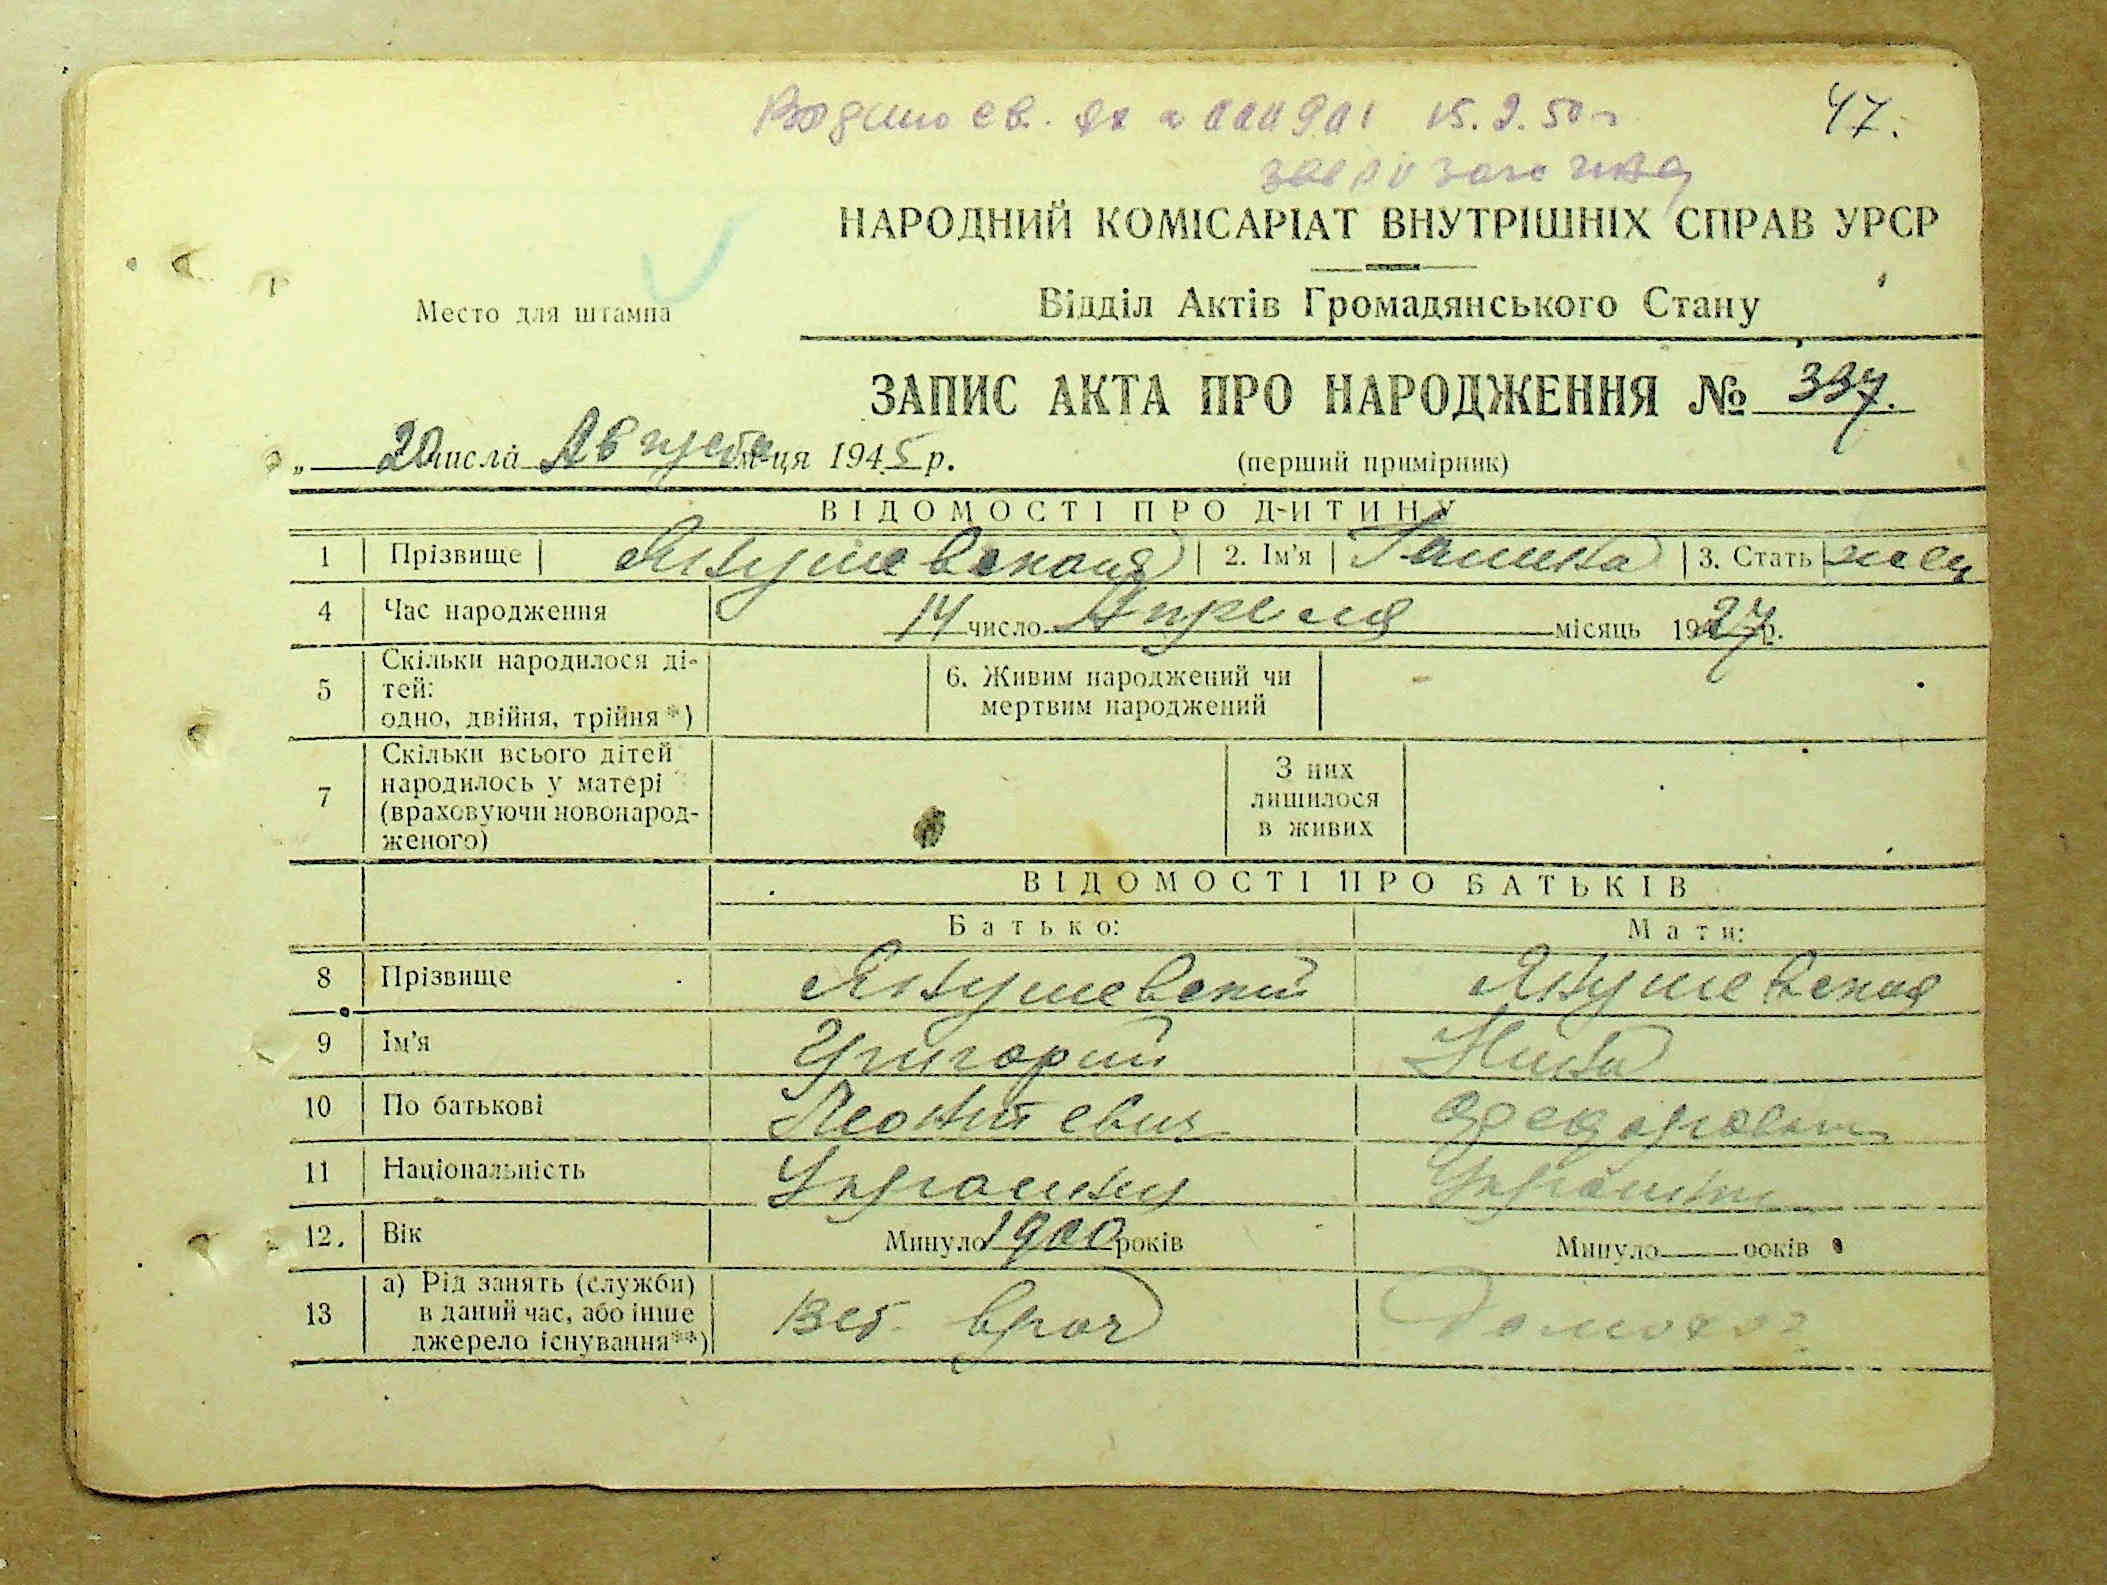 15.9.50 г 47.
НАРОДНИЙ КОМІСАРІАТ ВНУТРІШНІХ СПРАВ УРСР
Место для штампа
Відділ Актів Громадянського Стану
ЗАПИС АКТА ПРО НАРОДЖЕННЯ № 337.
„ 20 числа Августа м-ця 1945 р. (перший примірник)
ВІДОМОСТІ ПРО ДИТИНУ
1 Прізвище Янушевская 2. Ім'я Галина 3. Стать жен
4 Час народження 14 число Апреля місяць 1927 р.
5 Скільки народилося ді-
тей:
одно, двійня, трійня*)
6. Живим народжений чи
мертвим народжений
7 Скільки всього дітей
народилось у матері
(враховуючи новонарод-
женого)
З них
лишилося
в живих
ВІДОМОСТІ ПРО БАТЬКІВ
Батько: Мати:
8 Прізвище Янушевский Янушевская
9 Ім'я Григорий Нина
10 По батькові Леонтевич Федоровна
11 Національність Украинец Украинка
12. Вік Минуло 1900 років Минуло років
13 а) Рід занять (служби)
в даний час, або інше
джерело існування**)
Вет. врач Домохоз